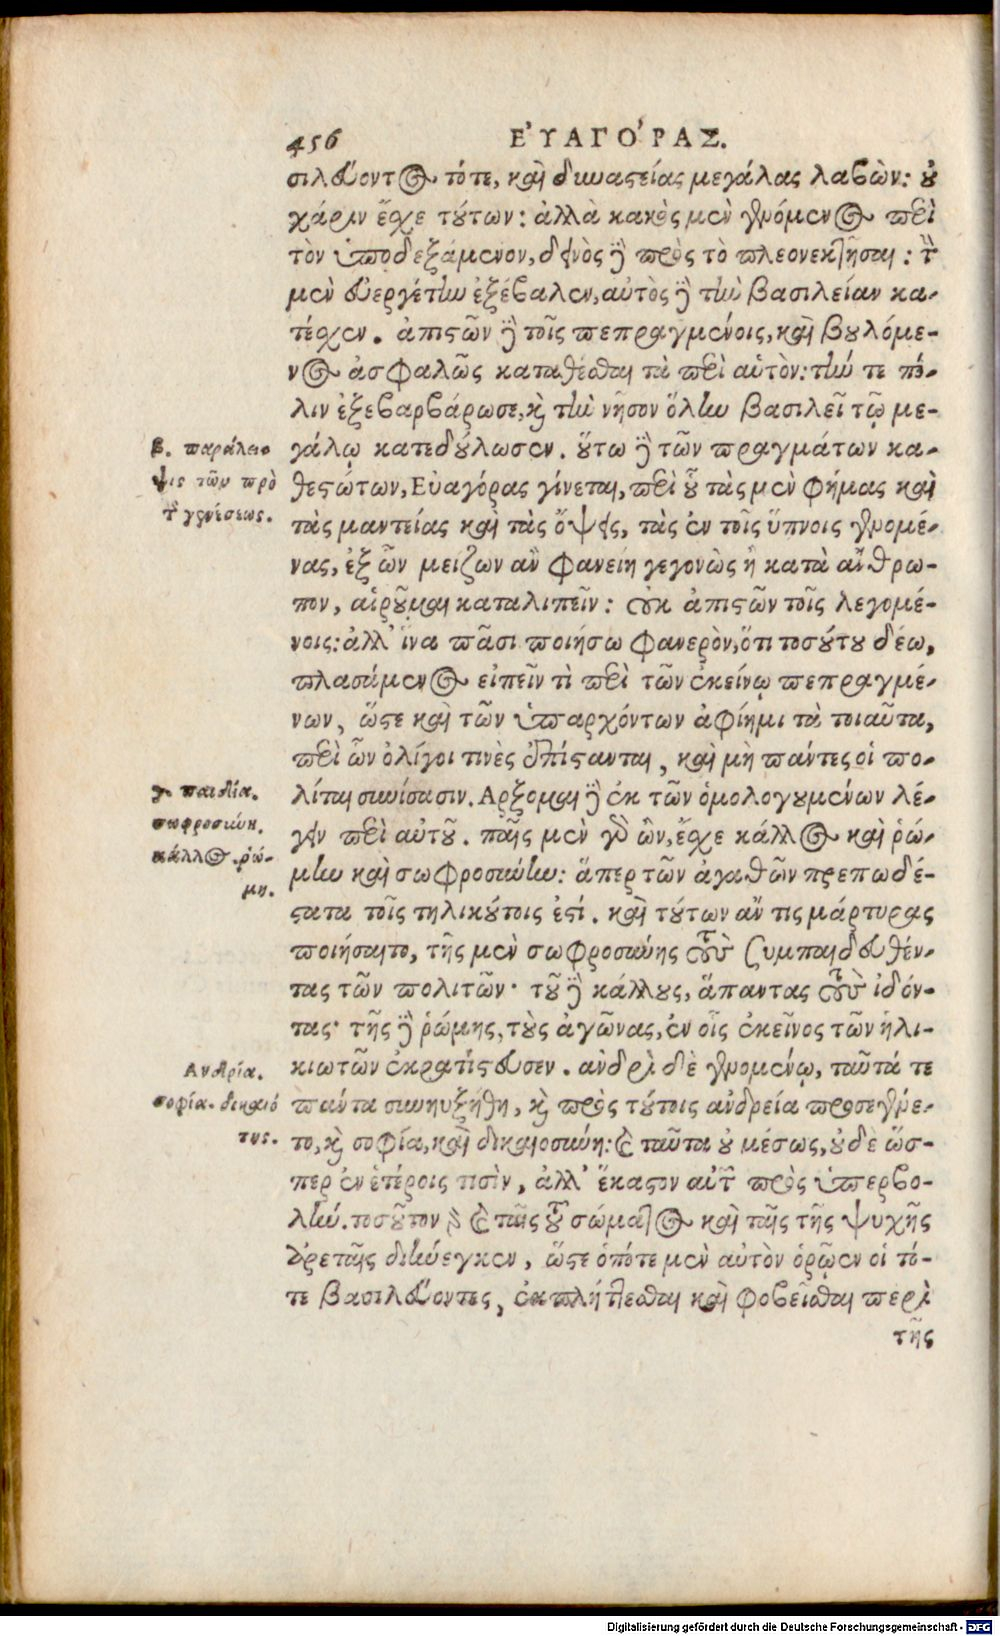 456 ΕὙΑΓΌΡΑΣ.
σιλεύοντος τότε, καὶ δυναστείας μεγάλας λαβὼν: οὐ
χάριν ἔσχε τούτων: ἀλλὰ κακὸς μὲν γενόμενος περὶ
τὸν ὑποδεξάμενον, δεινὸς δὲ πρὸς τὸ πλεονεκτῆσαι: τὸν
μὲν εὐεργέτην ἐξέβαλεν, αὐτὸς δὲ τὴν βασιλείαν κα-
τέσχεν. ἀπιστῶν δὲ τοῖς πεπραγμένοις, καὶ βουλόμε-
νος ἀσφαλῶς καταθέσθαι τὰ περὶ αὑτὸν: τήν τε πό-
λιν ἐξεβαρβάρωσε, καὶ τὴν νῆσον ὅλην βασιλεῖ τῷ με-
β. παράλει-
γάλῳ κατεδούλωσεν. οὕτω δὲ τῶν πραγμάτων κα-
ψις τῶν πρὸ
θεστώτων, Εὐαγόρας γίνεται, περὶ οὗ τὰς μὲν φήμας καὶ
τῆς γενέσεως.
τὰς μαντείας καὶ τὰς ὄψεις, τὰς ἐν τοῖς ὕπνοις γενομέ-
νας, ἐξ ὧν μείζων ἂν φανείη γεγονὼς ἢ κατὰ ἄνθρω-
πον, αἱροῦμαι καταλιπεῖν: οὐκ ἀπιστῶν τοῖς λεγομέ-
νοις: ἀλλ' ἵνα πᾶσι ποιήσω φανερὸν, ὅτι τοσούτου δέω,
πλασάμενος εἰπεῖν τὶ περὶ τῶν ἐκείνῳ πεπραγμέ-
νων, ὥστε καὶ τῶν ὑπαρχόντων ἀφίημι τὰ τοιαῦτα,
περὶ ὧν ὀλίγοι τινὲς ἐπίστανται, καὶ μὴ πάντες οἱ πο-
γ. παιδία.
λίται συνίσασιν. Αρξομαι δὲ ἐκ τῶν ὁμολογουμένων λέ-
σωφροσύνη.
γειν περὶ αὐτοῦ. παῖς μὲν γὰρ ὢν, ἔσχε κάλλος καὶ ῥώ-
κάλλος. ῥώ-
μην καὶ σωφροσύνην: ἅπερ τῶν ἀγαθῶν πρεπωδέ-
μη.
στατα τοῖς τηλικούτοις ἐστί. καὶ τούτων ἄν τις μάρτυρας
ποιήσαιτο, τῆς μὲν σωφροσύνης τοὺς συμπαιδευθέν-
τας τῶν πολιτῶν· τοῦ δὲ κάλλους, ἅπαντας τοὺς ἰδόν-
τας· τῆς δὲ ῥώμης, τοὺς ἀγῶνας, ἐν οἷς ἐκεῖνος τῶν ἡλι-
Ανδρία.
κιωτῶν ἐκρατίστευσεν. ἀνδρὶ δὲ γενομένῳ, ταῦτά τε
σοφία. δικαιό
πάντα συνηυξήθη, καὶ πρὸς τούτοις ἀνδρεία προσεγένε-
της.
το, καὶ σοφία, καὶ δικαιοσύνη: καὶ ταῦτα οὐ μέσως, οὐδὲ ὥσ-
περ ἐν ἑτέροις τισὶν, ἀλλ' ἕκαστον αὐτῶν πρὸς ὑπερβο-
λήν. τοσοῦτον γὰρ καὶ ταῖς τοῦ σώματος καὶ ταῖς τῆς ψυχῆς
ἀρεταῖς διήνεγκεν, ὥστε ὁπότε μὲν αὐτὸν ὁρῷεν οἱ τό-
τε βασιλεύοντες, ἐκπλήττεσθαι καὶ φοβεῖσθαι περὶ
τῆς
Digitalisierung gefördert durch die Deutsche Forschungsgemeinschaft - DFG